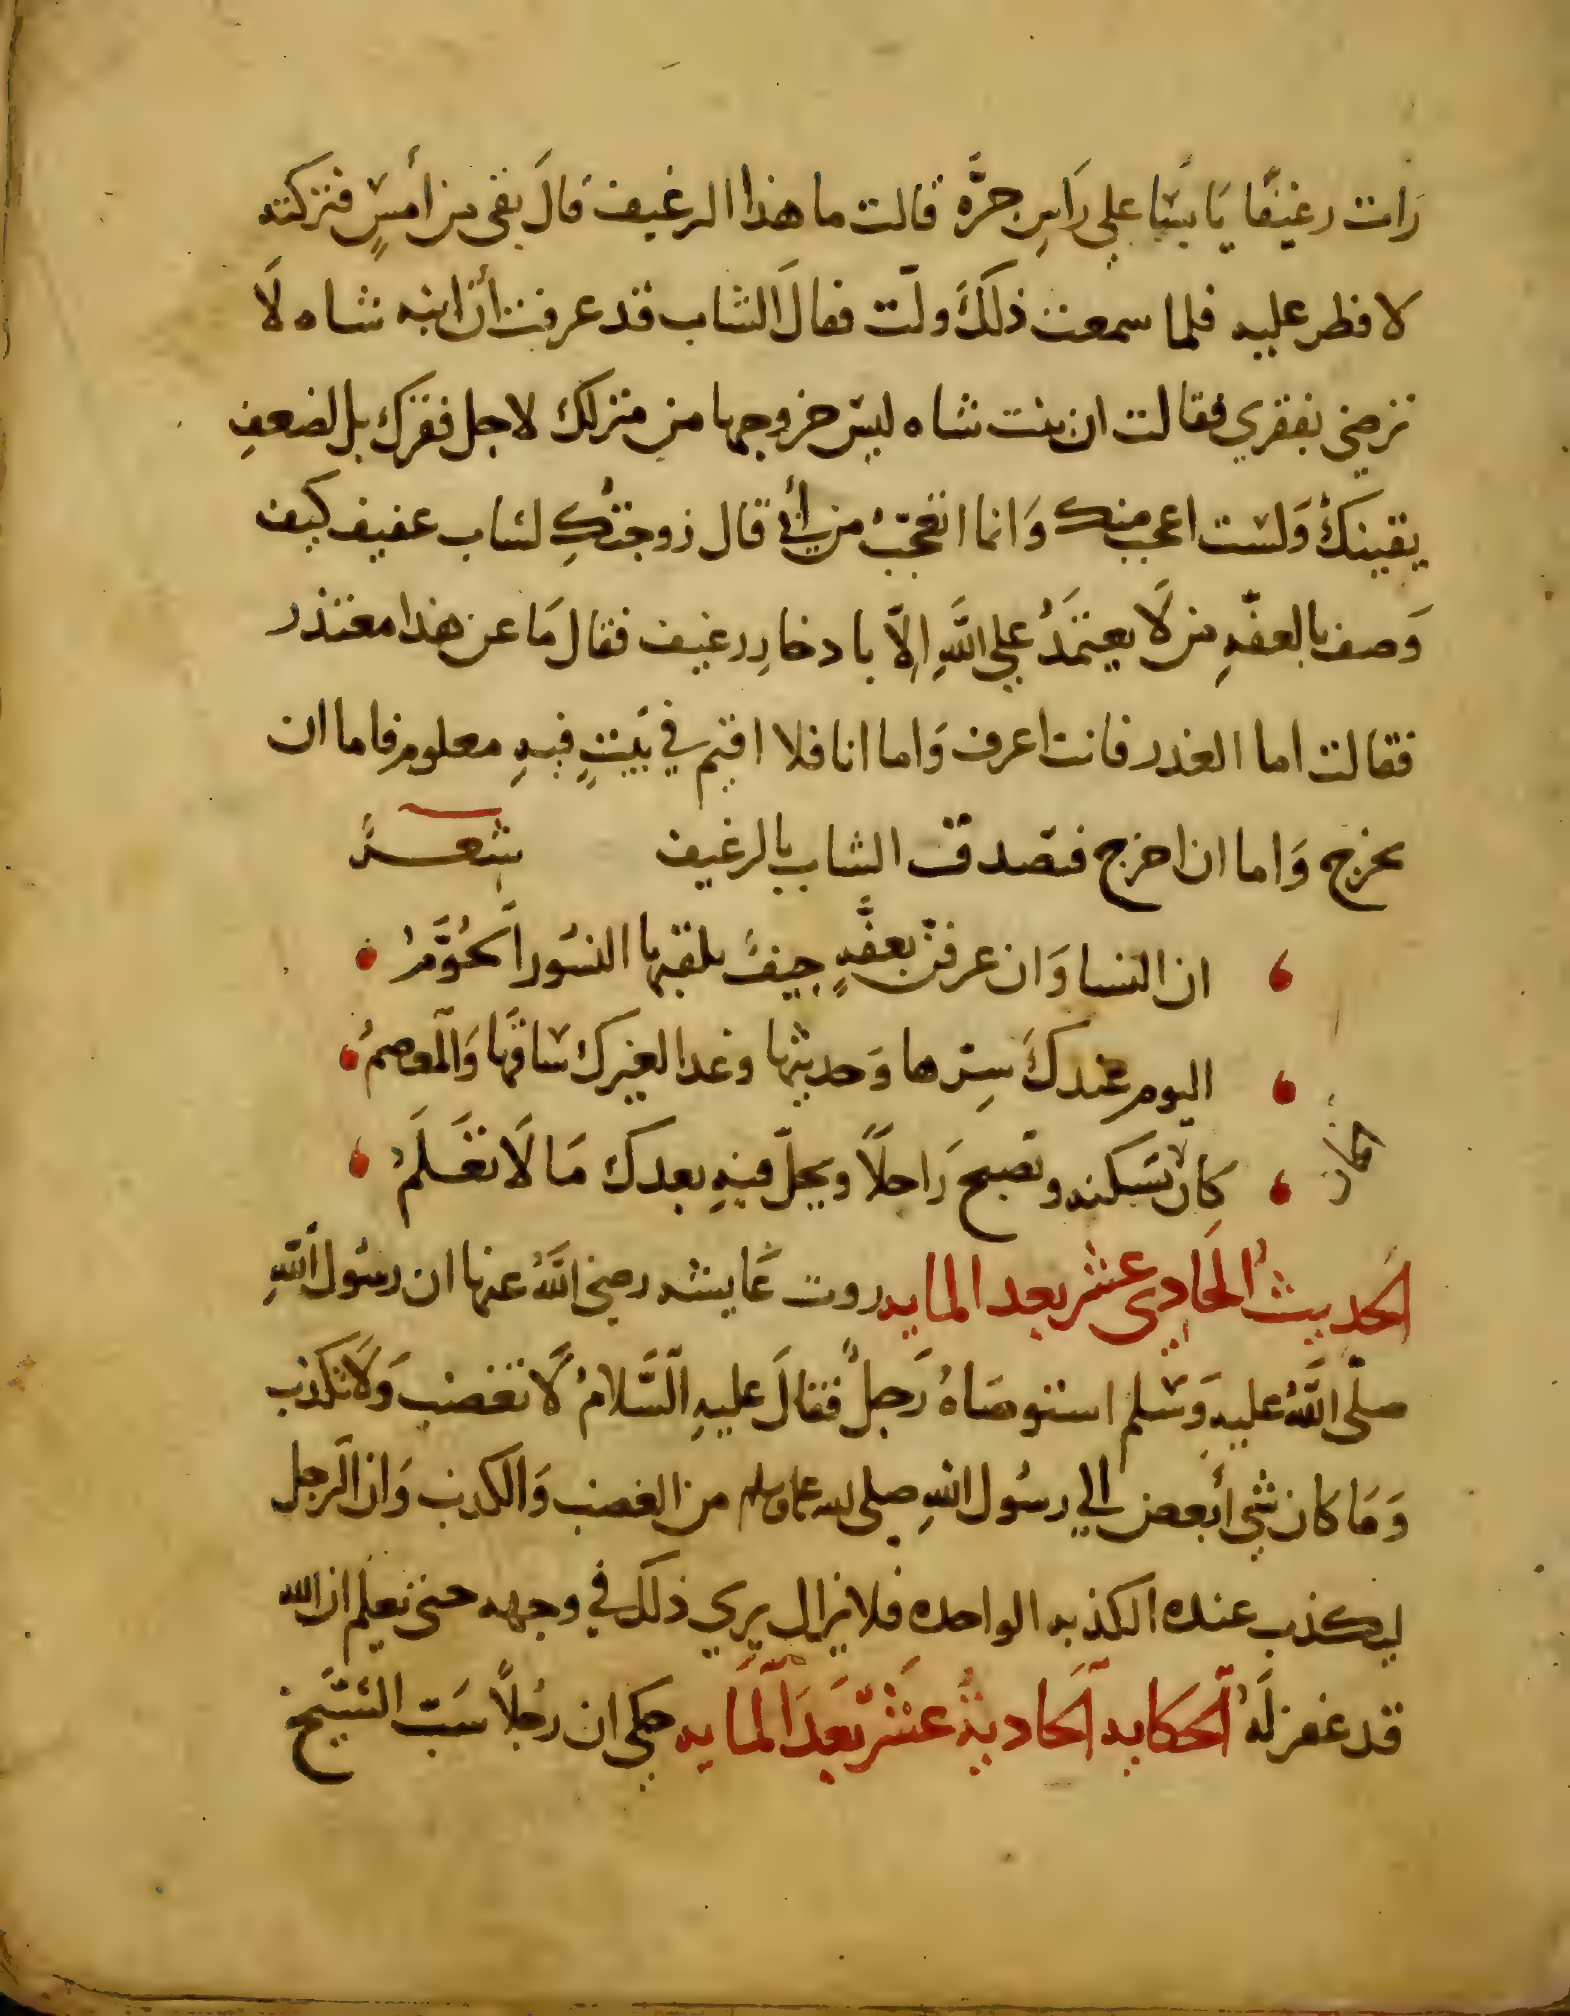 رَات رغيفًا يَابسًا علي رَاسِ جرَّه قالت ما هذا الرغيف قالَ بقى من أمسٍ فتركته
لافطر عليه فلما سمعت ذلكَ ولّت فقالَ الشاب قد عرفت أن ابنه شاه لَا
ترضى بفقري فقالت ان بنت شاه ليسَ خروجها من منزلك لاجل فقرك بل لضعفِ
يقينكَ وَلست اعجب منك وَانما اتعجّبُ من أبي قال زوجتُكِ لشاب عفيف كيف
وَصف بالعفّهِ من لَا يعتمَدُ علي اللَّهِ اِلّا بادخارِ رغيف فقال مَا عن هذا معتذر
فقالت اما العذر فانت اعرف وَاما انا فلا اقيم في بَيتٍ فيهِ معلوم فاما ان
يخرج وَاما ان اخرج فتصدق الشاب بالرغيف شعـــرٌ
ان النسا وَان عرفنَ بعفَّهٍ جيفٌ يلقيها النسُور الحُوَّمُ
اليوم عندكَ سِترها وَحديثها وغدا لغيرك ساقُها وَالمعصمُ
كان تسكنه وتصبح رَاحلًا ويحلّ فيهِ بعدك مَا لَا تعَلمُ
كان
الحديثُ الحَادي عشر بعد المايه روت عَايشه رضى اللَّهُ عنها ان رسُول اللهِ
صلّى اللَّهُ عليهِ وَسَلم استوصَاهُ رَجلٌ فقالَ عليهِ السَّلامُ لَا تغضب وَلَا تكذب
وَمَا كان شي أبغض الي رسُول اللهِ صلى الله عليه وسلم من الغضب وَالكذب وَان الرجل
ليكذب عنده الكذبه الواحده فلا يزال يري ذلكَ في وجهه حتى تعلم ان الله
قد غفر لَهُ الحكايه الحاديةُ عشر بَعدَ المَايه حكى ان رجُلًا سَبّ الشيخ